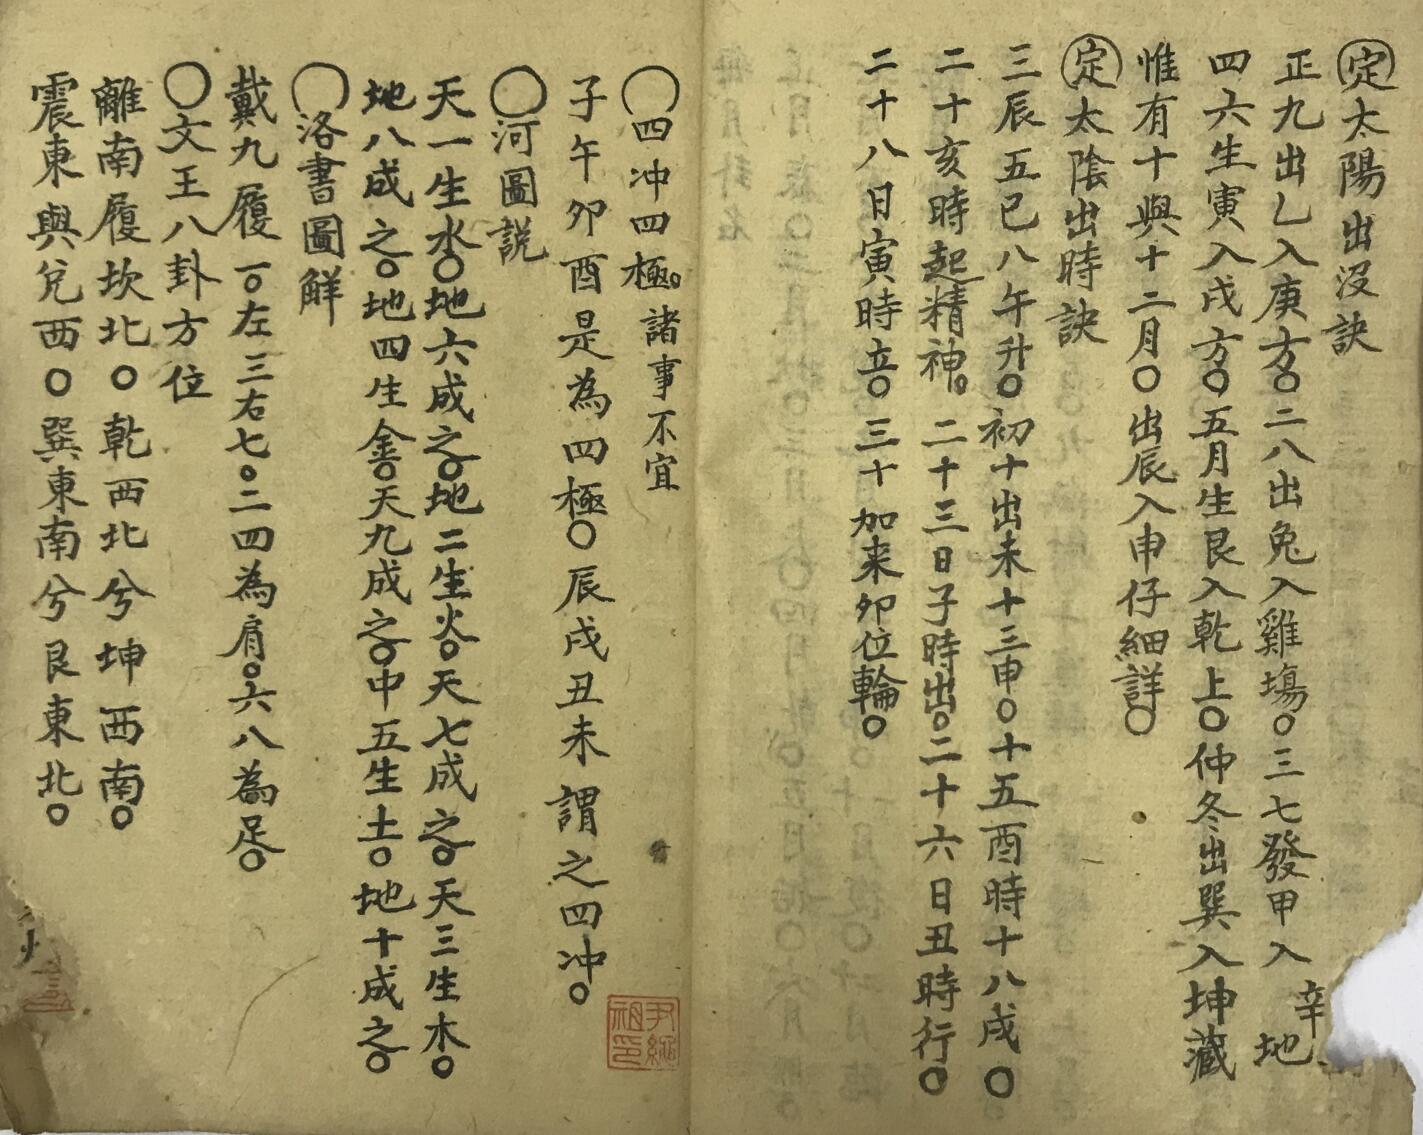 定太陽出沒訣
正九出乙入庚方〇二八出兔入雞塲〇三七發甲入辛地
四六生寅入戌方〇五月生艮入乾上〇仲冬出巽入坤藏
惟有十與十二月〇出辰入申仔細詳〇
定太陰出時訣
三辰五巳八午升〇初十出未十三申〇十五酉時十八戌〇
二十亥時起精神〇二十三日子時出〇二十六日丑時行〇
二十八日寅時立〇三十加来卯位輪〇
〇四冲四極〇諸事不宜
子午卯酉是為四極〇辰戌丑未謂之四冲〇
〇河圖説
天一生水〇地六成之〇地二生火〇天七成之〇天三生木〇
地八成之〇地四生金〇天九成之〇中五生土〇地十成之〇
〇洛書圖觧
戴九履一〇左三右七〇二四為肩〇六八為足〇
〇文王八卦方位
離南履坎北〇乾西北兮坤西南〇
震東與兌西〇巽東南兮艮東北〇